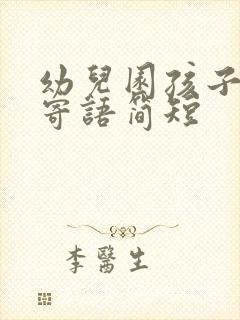 幼兒園孩子
寄語簡短
李醫生